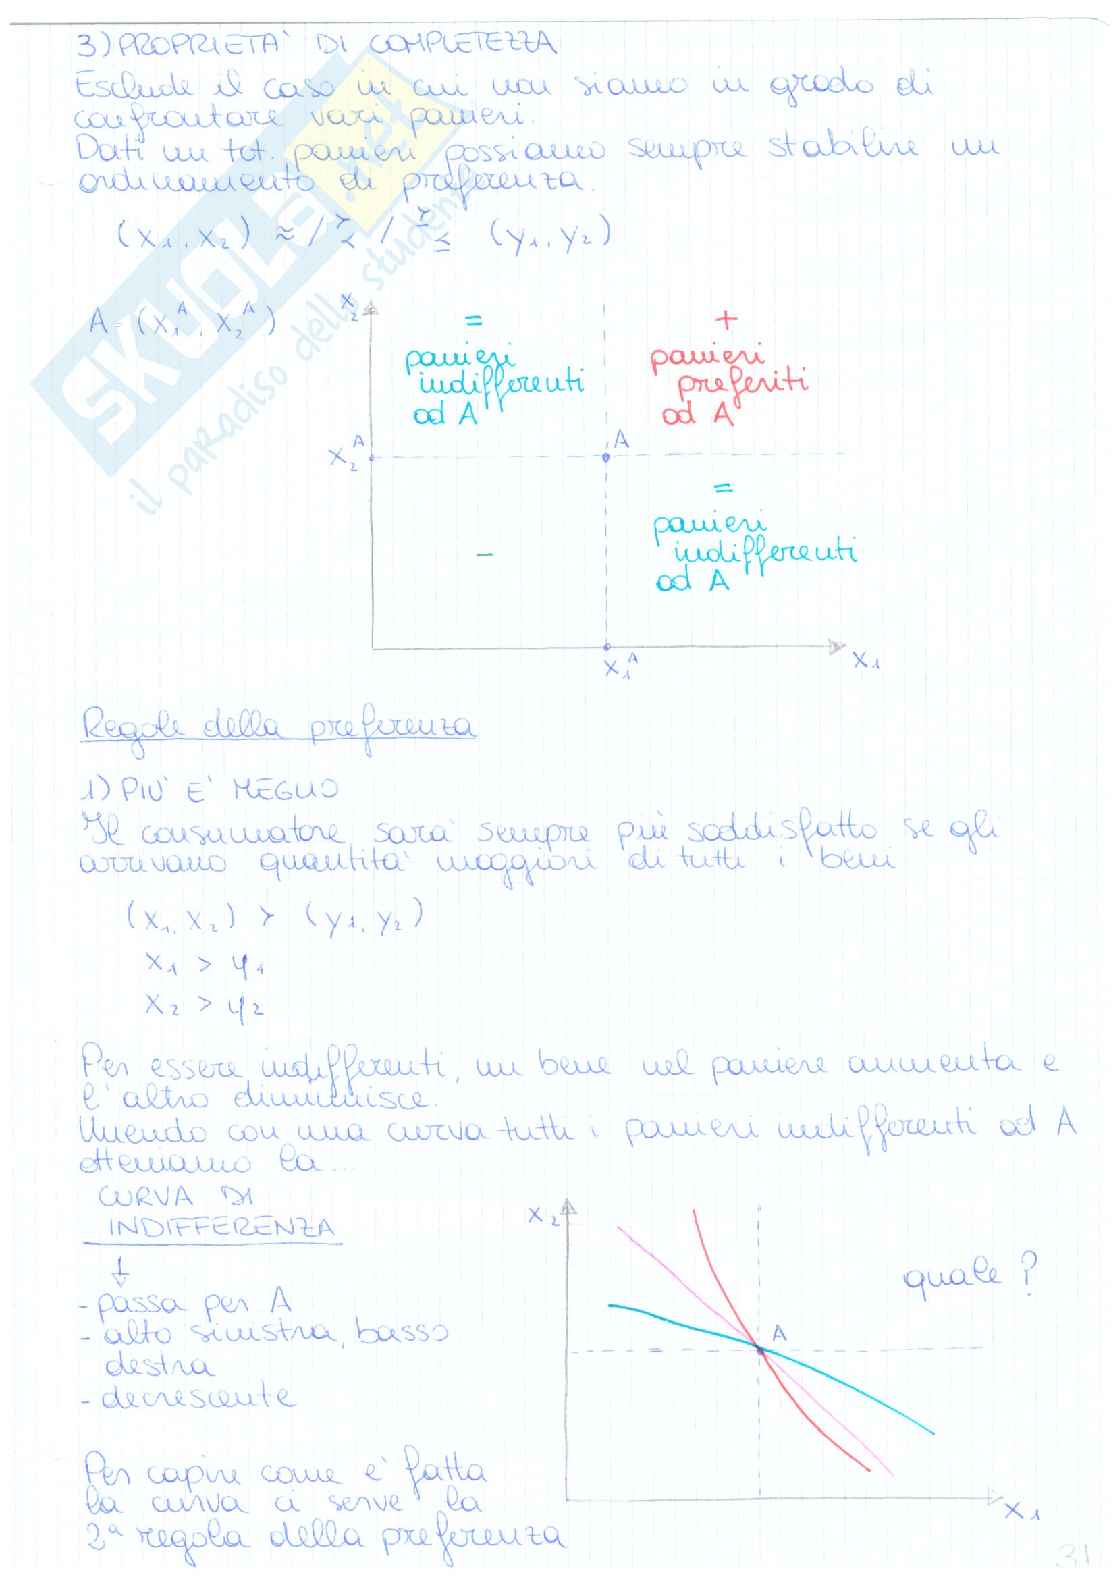 3) PROPRIETA' DI COMPLETEZZA
Esclude il caso in cui non siamo in grado di
confrontare vari panieri.
Dati un tot. panieri possiamo sempre stabilire un
ordinamento di preferenza.
(x₁, x₂) ≈ / ≻≺ / ≥≤ (y₁, y₂)
A = (x₁ᴬ, x₂ᴬ)
x₂
=
panieri
indifferenti
ad A
+
panieri
preferiti
ad A
x₂ᴬ
A
=
panieri
indifferenti
ad A
-
x₁ᴬ
x₁
Regole della preferenza
1) PIU' E' MEGLIO
Il consumatore sarà sempre più soddisfatto se gli
arrivano quantità maggiori di tutti i beni
(x₁, x₂) ≻ (y₁, y₂)
x₁ > y₁
x₂ > y₂
Per essere indifferenti, un bene nel paniere aumenta e
l'altro diminuisce.
Unendo con una curva tutti i panieri indifferenti ad A
otteniamo la...
CURVA DI
INDIFFERENZA
- passa per A
- alto sinistra, basso
destra
- decrescente
Per capire come è fatta
la curva ci serve la
2ª regola della preferenza
x₂
A
quale?
x₁
31
SKUOLA.net
il paradiso dello studente